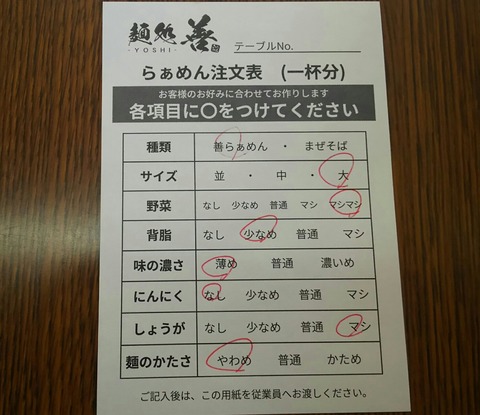 麺処 善
-YOSHI-
テーブルNo.
らぁめん注文表 (一杯分)
お客様のお好みに合わせてお作りします
各項目に〇をつけてください
種類 善らぁめん ・ まぜそば
サイズ 並 ・ 中 ・ 大
野菜 なし 少なめ 普通 マシ マシマシ
背脂 なし 少なめ 普通 マシ
味の濃さ 薄め 普通 濃いめ
にんにく なし 少なめ 普通 マシ
しょうが なし 少なめ 普通 マシ
麺のかたさ やわめ 普通 かため
ご記入後は、この用紙を従業員へお渡しください。